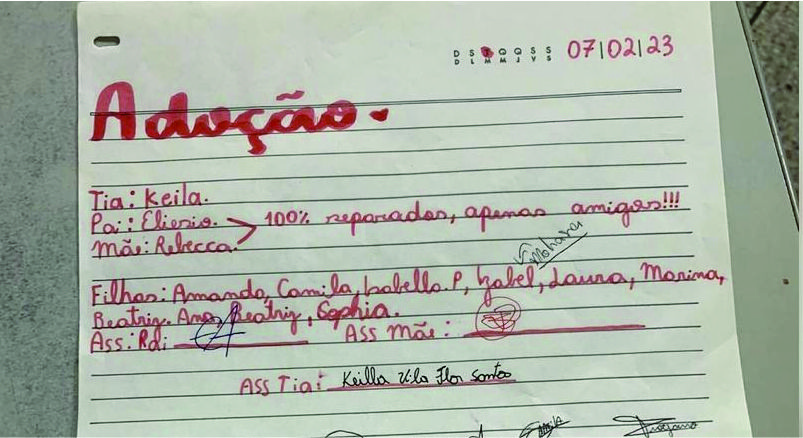 D S T Q Q S S
D L M M J V S
07|02|23
Adoção.
Tia: Keila.
Pai: Eliesio.
Mãe: Rebecca.
100% separados, apenas amigos!!!
Filhas: Amanda, Camila, Isabella.P, Izabel, Laura, Marina,
Beatriz. Ana Beatriz, Sophia.
Ass: Pai: Ass Mãe:
Ass Tia: Keilla Vila Flor Santos